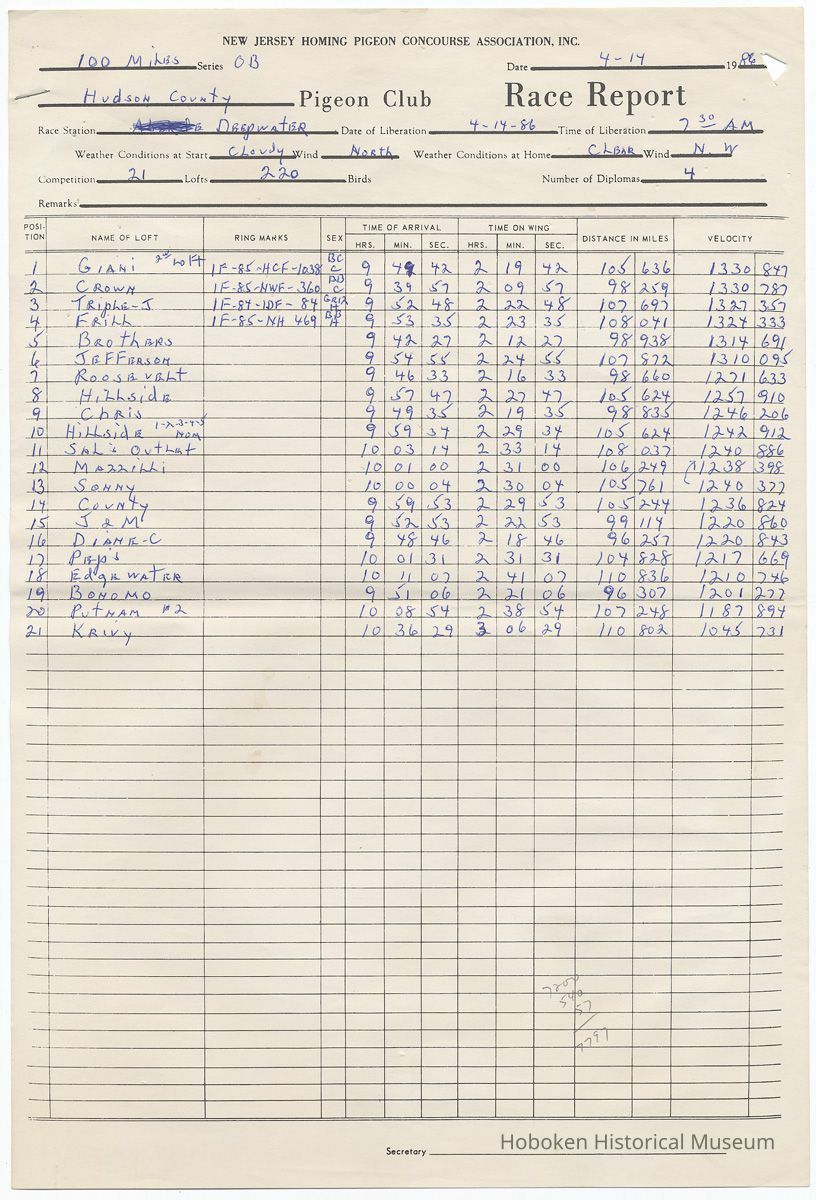 NEW JERSEY HOMING PIGEON CONCOURSE ASSOCIATION, INC.
100 Miles Series OB Date 4-14 1986
Hudson County Pigeon Club Race Report
Race Station Deepwater Date of Liberation 4-14-86 Time of Liberation 7 30 AM
Weather Conditions at Start Cloudy Wind North Weather Conditions at Home Clear Wind N.W
Competition 21 Lofts 220 Birds Number of Diplomas 4
Remarks
POSI-TION NAME OF LOFT RING MARKS SEX TIME OF ARRIVAL TIME ON WING DISTANCE IN MILES VELOCITY
HRS. MIN. SEC. HRS. MIN. SEC.
1 Giani 2nd Loft IF-85-HCF-1038 BC C 9 49 42 2 19 42 105 636 1330 847
2 Crown IF-85-NWF-360 C 9 39 57 2 09 57 98 259 1330 787
3 Triple-J IF-84-IDF-84 H 9 52 48 2 22 48 107 697 1327 357
4 Frill IF-85-NH 469 BB H 9 53 35 2 23 35 108 041 1324 333
5 Brothers 9 42 27 2 12 27 98 938 1314 691
6 Jefferson 9 54 55 2 24 55 107 872 1310 095
7 Roosevelt 9 46 33 2 16 33 98 660 1271 633
8 Hillside 9 57 47 2 27 47 105 624 1257 910
9 Chris 9 49 35 2 19 35 98 835 1246 206
10 Hillside 1-2-3-4-5 NOM 9 59 34 2 29 34 105 624 1242 912
11 Sal's Outlet 10 03 14 2 33 14 108 037 1240 886
12 Mazzilli 10 01 00 2 31 00 106 249 1238 398
13 Sonny 10 00 04 2 30 04 105 761 1240 377
14 County 9 59 53 2 29 53 105 244 1236 824
15 J & M 9 52 53 2 22 53 99 114 1220 860
16 Diane-C 9 48 46 2 18 46 96 257 1220 843
17 Pep's 10 01 31 2 31 31 104 828 1217 669
18 Edgewater 10 11 07 2 41 07 110 836 1210 746
19 Bonomo 9 51 06 2 21 06 96 307 1201 277
20 Putnam #2 10 08 54 2 38 54 107 248 1187 894
21 Krivy 10 36 29 3 06 29 110 802 1045 731
7200
540
57
7797
Secretary
Hoboken Historical Museum